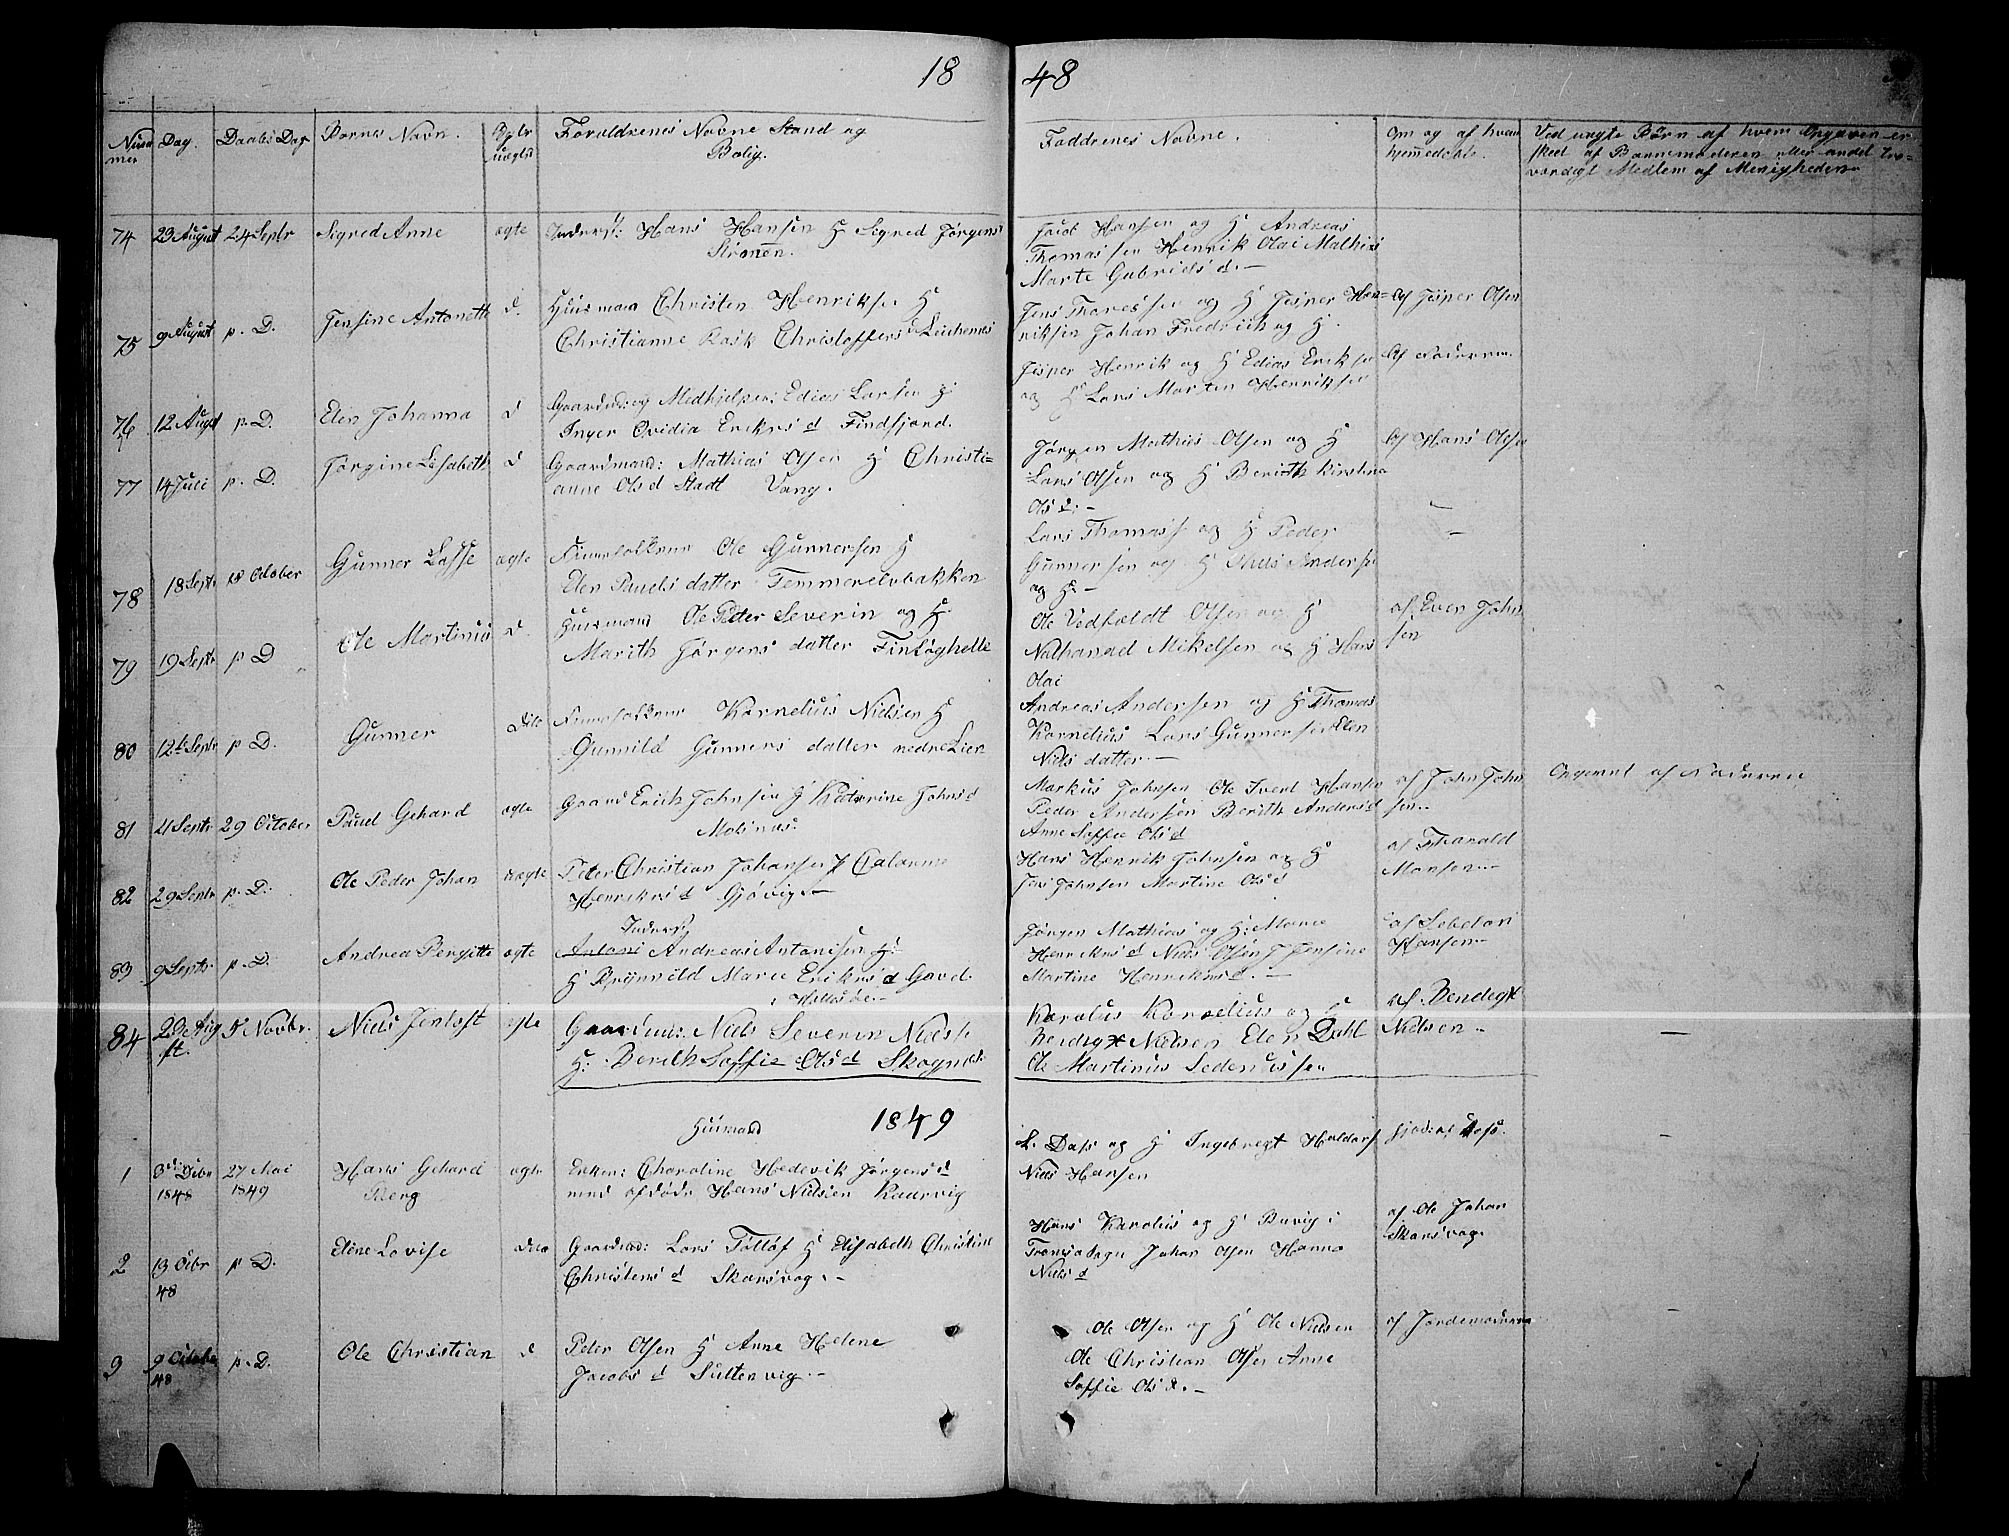 18 48
Num
mer
Dag.
Daabs Dag
Barnes Navn.
Ægte
uægte
Foreldrenes Navne Stand og
Bolig.
Faddrenes Navne.
Om og af hvem
hjemmedøbte.
Ved uægte Børn af hvem Opgaven er
skeet af Barnemoderen eller andet tro-
værdigt Medlem af Menigheden
74 23 August 24 Septr Sigred Anne ægte Inderst: Hans Hansen H Sigred Jørgens
Strømen.
Jacob Hansen og H Andreas
Thomassen Henrik Olai Mathias
Marte Gabriels d.-
75 9 August p. D. Jensine Antoneth d. Huusmand Christen Henriksen H
Christianne Rask Christoffersd Leichenes
Jens Thoresen og H Jesper Hen-
riksen Johan Fredrich og H.
Af Jesper Olsen
76 12 August p. D. Elen Johanna d Gaardmd: og Medhjelper: Edias Larsen H
Inger Ovidia Eriks d Findfjord.
Jesper Henrik og H Edias Eriksen
og H Lars Morten Henriksen
77 14 Juli p. D. Jørgine Lisabeth d Gaardmand: Mathias Olsen H Christi-
anne Ols d Stadt Vang.
Jørgen Mathias Olsen og H
Lars Olsen og H Berith Kirstina
Ols d.-
Af Hans Olsen
78 18 Septr October Gunner Lasse ægte Ole Gunnersen H
Elen Pauels datter Temmerelvbakken
Lars Thomass og H Peder
Gunnersen og H Andersen
og H.-
79 19 Septr p D Ole Martinus d. Huusmand Ole Peter Severin og H.
Marith Jørgens datter
Ole Vedholdt Olsen og H
Nathanael Mikelsen og H Hans
Olai
af Even John
sen
80 12te Septr p D. Gunner dito Kornelius Nielsen H
Gunnild Gunners datter nedre Lien
Andreas Andersen og H Thomas
Kornelius Lars Gunnersen Elen
Niels datter.-
81 21 Septr 29 October Pauel Gehard ægte Gaard Erich Johnsen H Katrine Johns d
Molinas.
Markus Johnsen Ole Ivert Hansen
Peder Andersen Berith Anders d
Anne Soffie Ols d
af John John
sen.
Opgevet af
82 29 Septr p. D. Ole Peder Johan uægte Peter Christian Johansen P
Henriks d Gjøvig.-
Hans Henrik Johnsen og H
Jens Johnsen Martine Ols d
af Tharald
Monsen.-
83 9 Septr. p. D. Andrea Bergitte ægte
Inders
Antoni Andreas Antonisen H.
H Brynnild Marie Eriks d
Jørgen Mathias og H. Marie
Henriks d Niels Olsen Jensine
Martine Henriks d.-
af
Hansen
84 29 Aug
st.
5 Novbr. Niels Jentoft ægte Gaardmd: Niels Severin Nielss
H. Berith Soffie Ols d Skognes
Karolus Kornelius og H
Bendigt Nielsen Elen Dahl
Ole Martinus Sedeniussen
af Bendigt
Nielsen.
1849
Huusmand
1 3d Dcbr
1848
27 Mai
1849
Hans Gehard
Berg
ægte Enken: Charoline Hedevik Jørgens d
med afdøde Hans Nielsen Kaarvig
L. Dass og H Ingebregt Haldors
Niels Hansen
2 13 Octbr
48
p D. Eline Lovise ditto Gaardmd: Lars Tollof H Elisabeth Christine
Christens d Skarsvag.-
Hans Karolus og H Buvig i
Tromsø Sogn Johan Olsen Hanna
Niels d
af Ole Johan
Skarsvag
3 9 October
48
p. D. Ole Christian d Peter Olsen H Anne Helene
Jacobs d Sultenvig.-
Ole Olsen og H Ole Nielsen
Ole Christian Olsen Anne
Soffie Ols d.-
af Jordemoderen